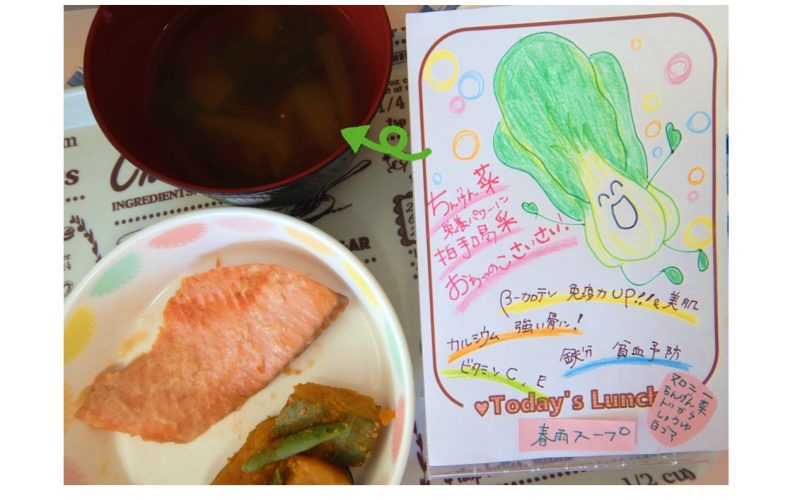 ちんげん菜
栄養パワーに
拍手喝采
おちゃのこさいさい!
β-カロテン 免疫力UP!!&美肌
カルシウム 強い骨に!
鉄分 貧血予防
ビタミンC、E
♥Today's Lunch
春雨スープ
マロニー
ちんげん菜
トリガラ
しょうゆ
白ゴマ
INGREDIENTS
1/4
1/2 cup